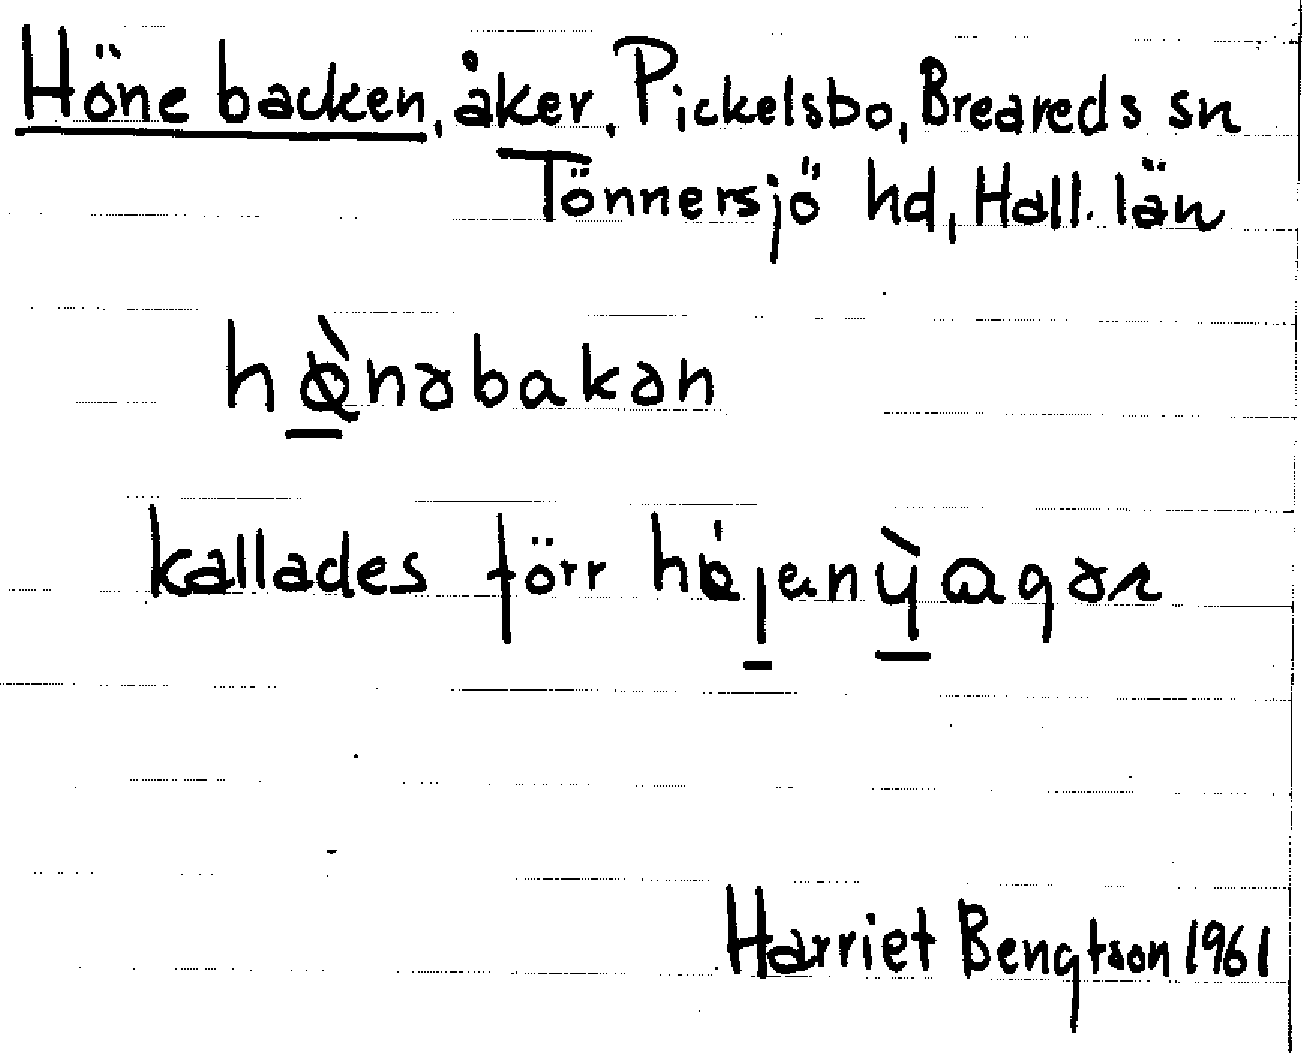 Höne backen, åker, Pickelsbo, Breareds sn
Tönnersjö hd, Hall. län
hø̀nəbakən
kallades förr
Harriet Bengtson 1961